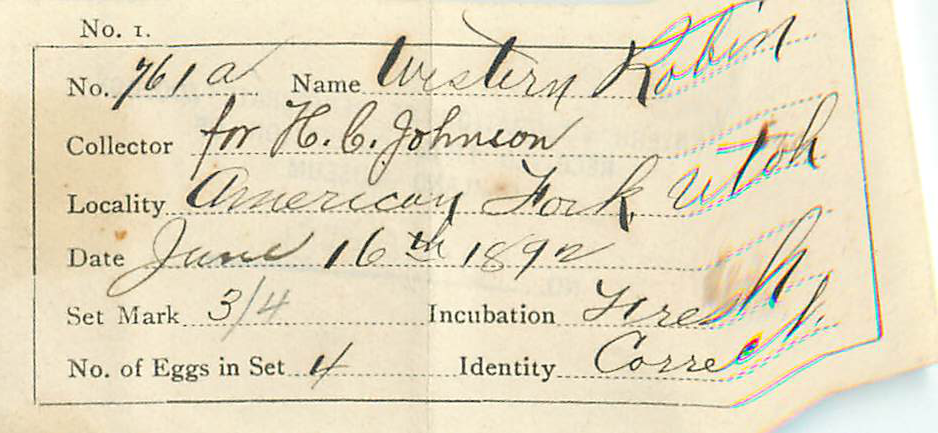 No. 1.
No. 761a Name Western Robin
Collector for H. C. Johnson
Locality American Fork, Utah
Date June 16th 1892
Set Mark 3/4 Incubation Fresh.
No. of Eggs in Set 4 Identity Correct